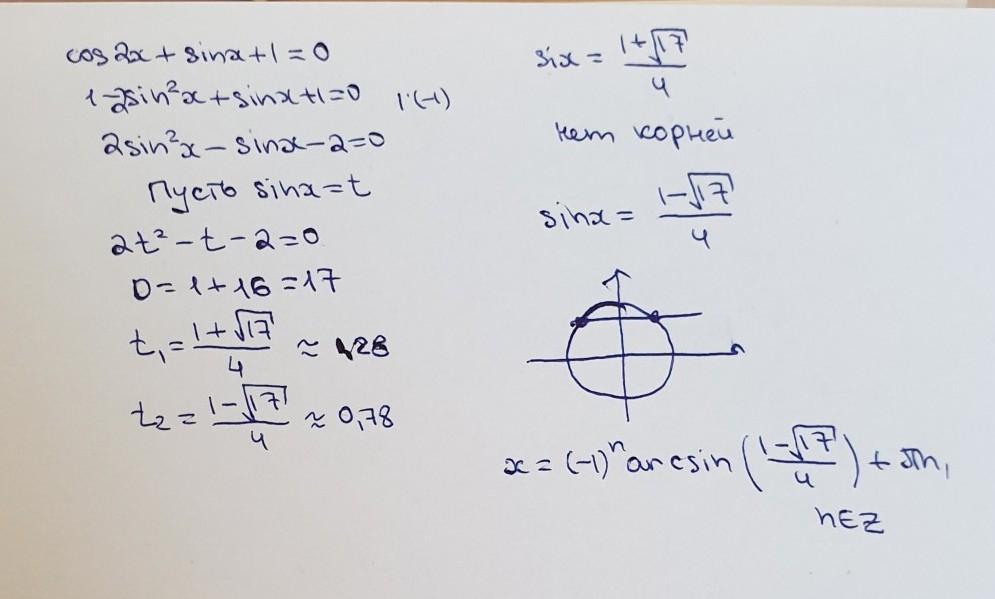 cos2x + sinx + 1 = 0
1 - 2sin²x + sinx + 1 = 0 | · (-1)
2sin²x - sinx - 2 = 0
Пусть sinx = t
2t² - t - 2 = 0
D = 1 + 16 = 17
t₁ = (1 + √17)/4 ≈ 1,28
t₂ = (1 - √17)/4 ≈ 0,78
six = (1 + √17)/4
нет корней
sinx = (1 - √17)/4
x = (-1)ⁿ arcsin((1 - √17)/4) + πn,
n∈Z